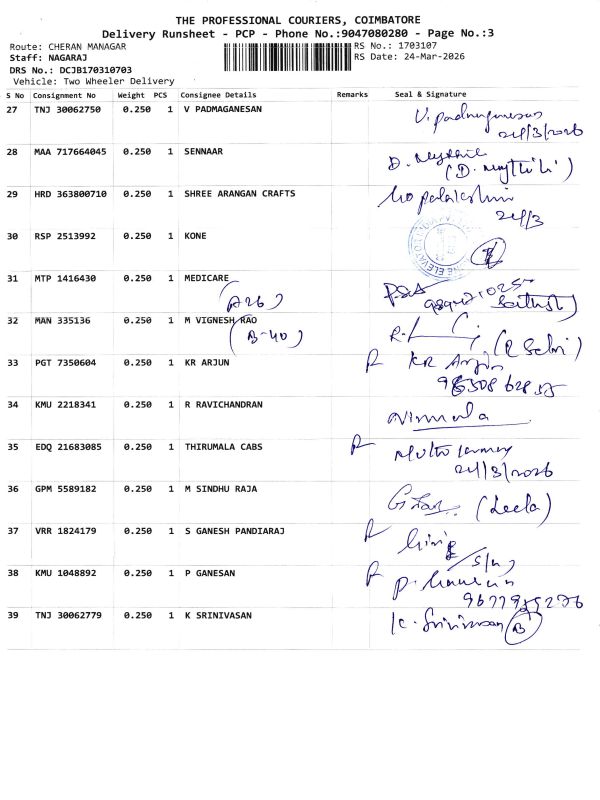 THE PROFESSIONAL COURIERS, COIMBATORE
Delivery Runsheet - PCP - Phone No.:9047080280 - Page No.:3
Route: CHERAN MANAGAR RS No.: 1703107
Staff: NAGARAJ RS Date: 24-Mar-2026
DRS No.: DCJB170310703
Vehicle: Two Wheeler Delivery
S No Consignment No Weight PCS Consignee Details Remarks Seal & Signature
27 TNJ 30062750 0.250 1 V PADMAGANESAN
24/3/2026
28 MAA 717664045 0.250 1 SENNAAR
(D. Mythili)
29 HRD 363800710 0.250 1 SHREE ARANGAN CRAFTS
24/3
30 RSP 2513992 0.250 1 KONE
31 MTP 1416430 0.250 1 MEDICARE
(A26)
32 MAN 335136 0.250 1 M VIGNESH RAO
(B-40)
33 PGT 7350604 0.250 1 KR ARJUN KR Arjun
34 KMU 2218341 0.250 1 R RAVICHANDRAN Nirmala
35 EDQ 21683085 0.250 1 THIRUMALA CABS
24/3/2026
36 GPM 5589182 0.250 1 M SINDHU RAJA (Leela)
37 VRR 1824179 0.250 1 S GANESH PANDIARAJ
38 KMU 1048892 0.250 1 P GANESAN
39 TNJ 30062779 0.250 1 K SRINIVASAN K. Srinivasan B